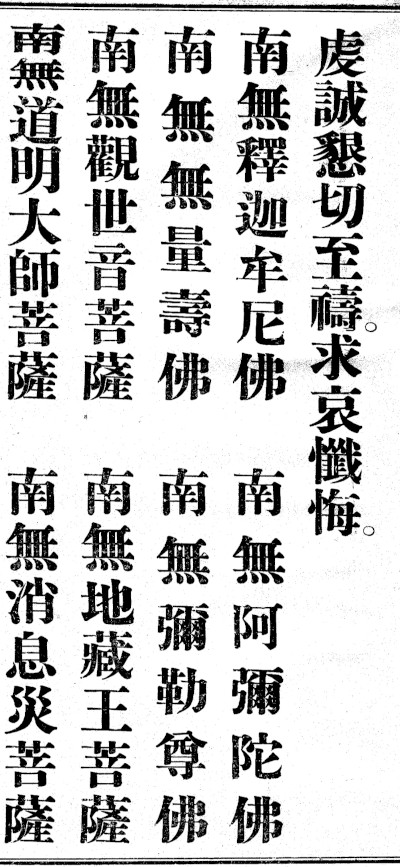 虔誠懇切至禱。求哀懺悔。
南無釋迦牟尼佛　南無阿彌陀佛
南無無量壽佛　南無彌勒尊佛
南無觀世音菩薩　南無地藏王菩薩
南無道明大師菩薩　南無消息災菩薩